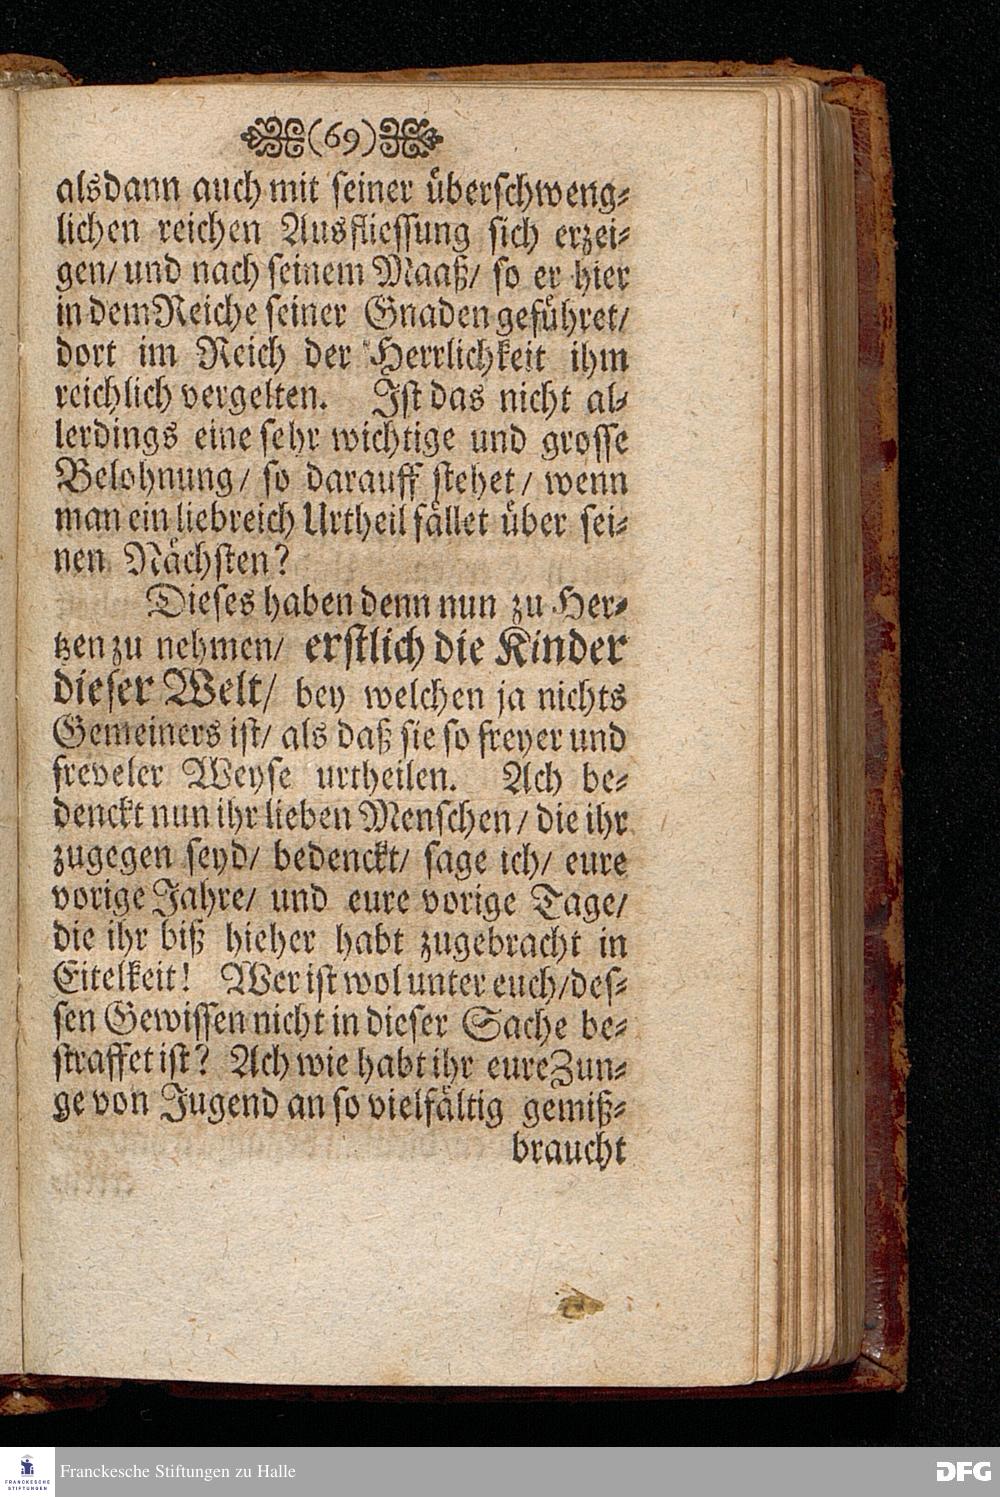 (69)
alsdann auch mit seiner überschweng-
lichen reichen Ausfliessung sich erzei-
gen/ und nach seinem Maaß/ so er hier
in dem Reiche seiner Gnaden geführet/
dort im Reich der Herrlichkeit ihm
reichlich vergelten. Ist das nicht al-
lerdings eine sehr wichtige und grosse
Belohnung/ so darauff stehet/ wenn
man ein liebreich Urtheil fället über sei-
nen Nächsten?
Dieses haben denn nun zu Her-
tzen zu nehmen/ erstlich die Kinder
dieser Welt/ bey welchen ja nichts
Gemeiners ist/ als daß sie so freyer und
freveler Weyse urtheilen. Ach be-
denckt nun ihr lieben Menschen/ die ihr
zugegen seyd/ bedenckt/ sage ich/ eure
vorige Jahre/ und eure vorige Tage/
die ihr biß hieher habt zugebracht in
Eitelkeit! Wer ist wol unter euch/ des-
sen Gewissen nicht in dieser Sache be-
straffet ist? Ach wie habt ihr eure Zun-
ge von Jugend an so vielfältig gemiß-
braucht
FRANCKESCHE STIFTUNGEN
Franckesche Stiftungen zu Halle
DFG